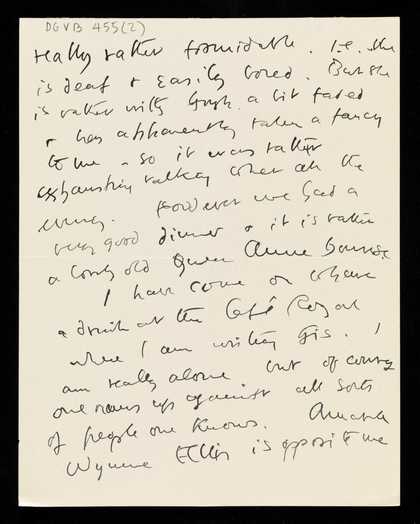 DGVB 455(2)
really rather formidable. I.e. she
is deaf & easily bored. But she
is rather witty though a bit faded
& has apparently taken a fancy
to me – so it was rather
exhausting talking to her all the
evening. However we had a
very good dinner & it is rather
a lovely old Queen Anne house
I have come on where
a drink at the Café Royal
where I am writing this. I
am really alone but of course
one runs up against all sorts
of people one knows. Amabel
Wynne Ellis is opposite me